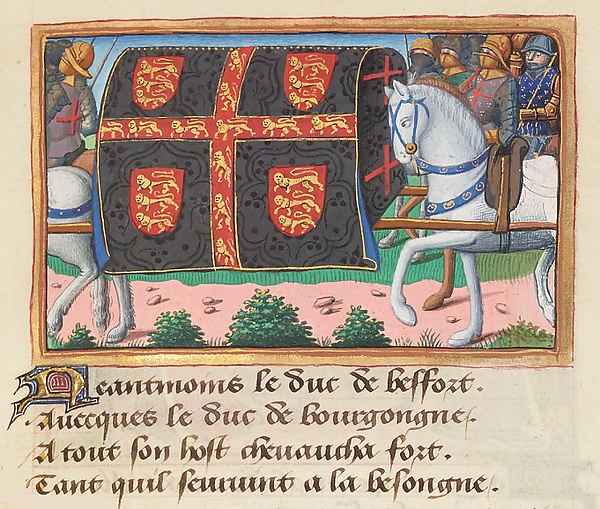 Neantmoins le duc de beffort.
Auecques le duc de bourgongne.
A tout son host cheuaucha fort.
Tant quil seuruint a la besongne.